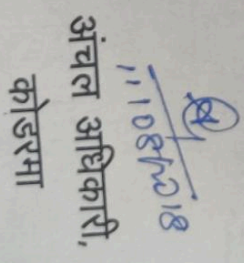 11/08/2018
अंचल अधिकारी,
कोडरमा